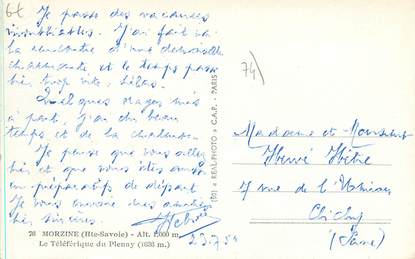 6t
Je passe des vacances
inoubliables. J'ai fait ici
la rencontre d'une demoiselle
charmante et le temps passe
bien trop vite, hélas.
Quelques orages mis
à part, j'ai du beau
temps et de la chaleur.
Je pense que vous allez
bien et que vous êtes aussi
en préparatifs de départ
Je vous envoie mes amitiés
bien sincères.
23.7.54
76 MORZINE (Hte-Savoie) - Alt. 1.000 m.
Le Téléférique du Pleney (1638 m.)
REAL-PHOTO C.A.P. - PARIS
74)
Madame et Monsieur
Hervé
7 rue de l'Union
Clichy
(Seine)